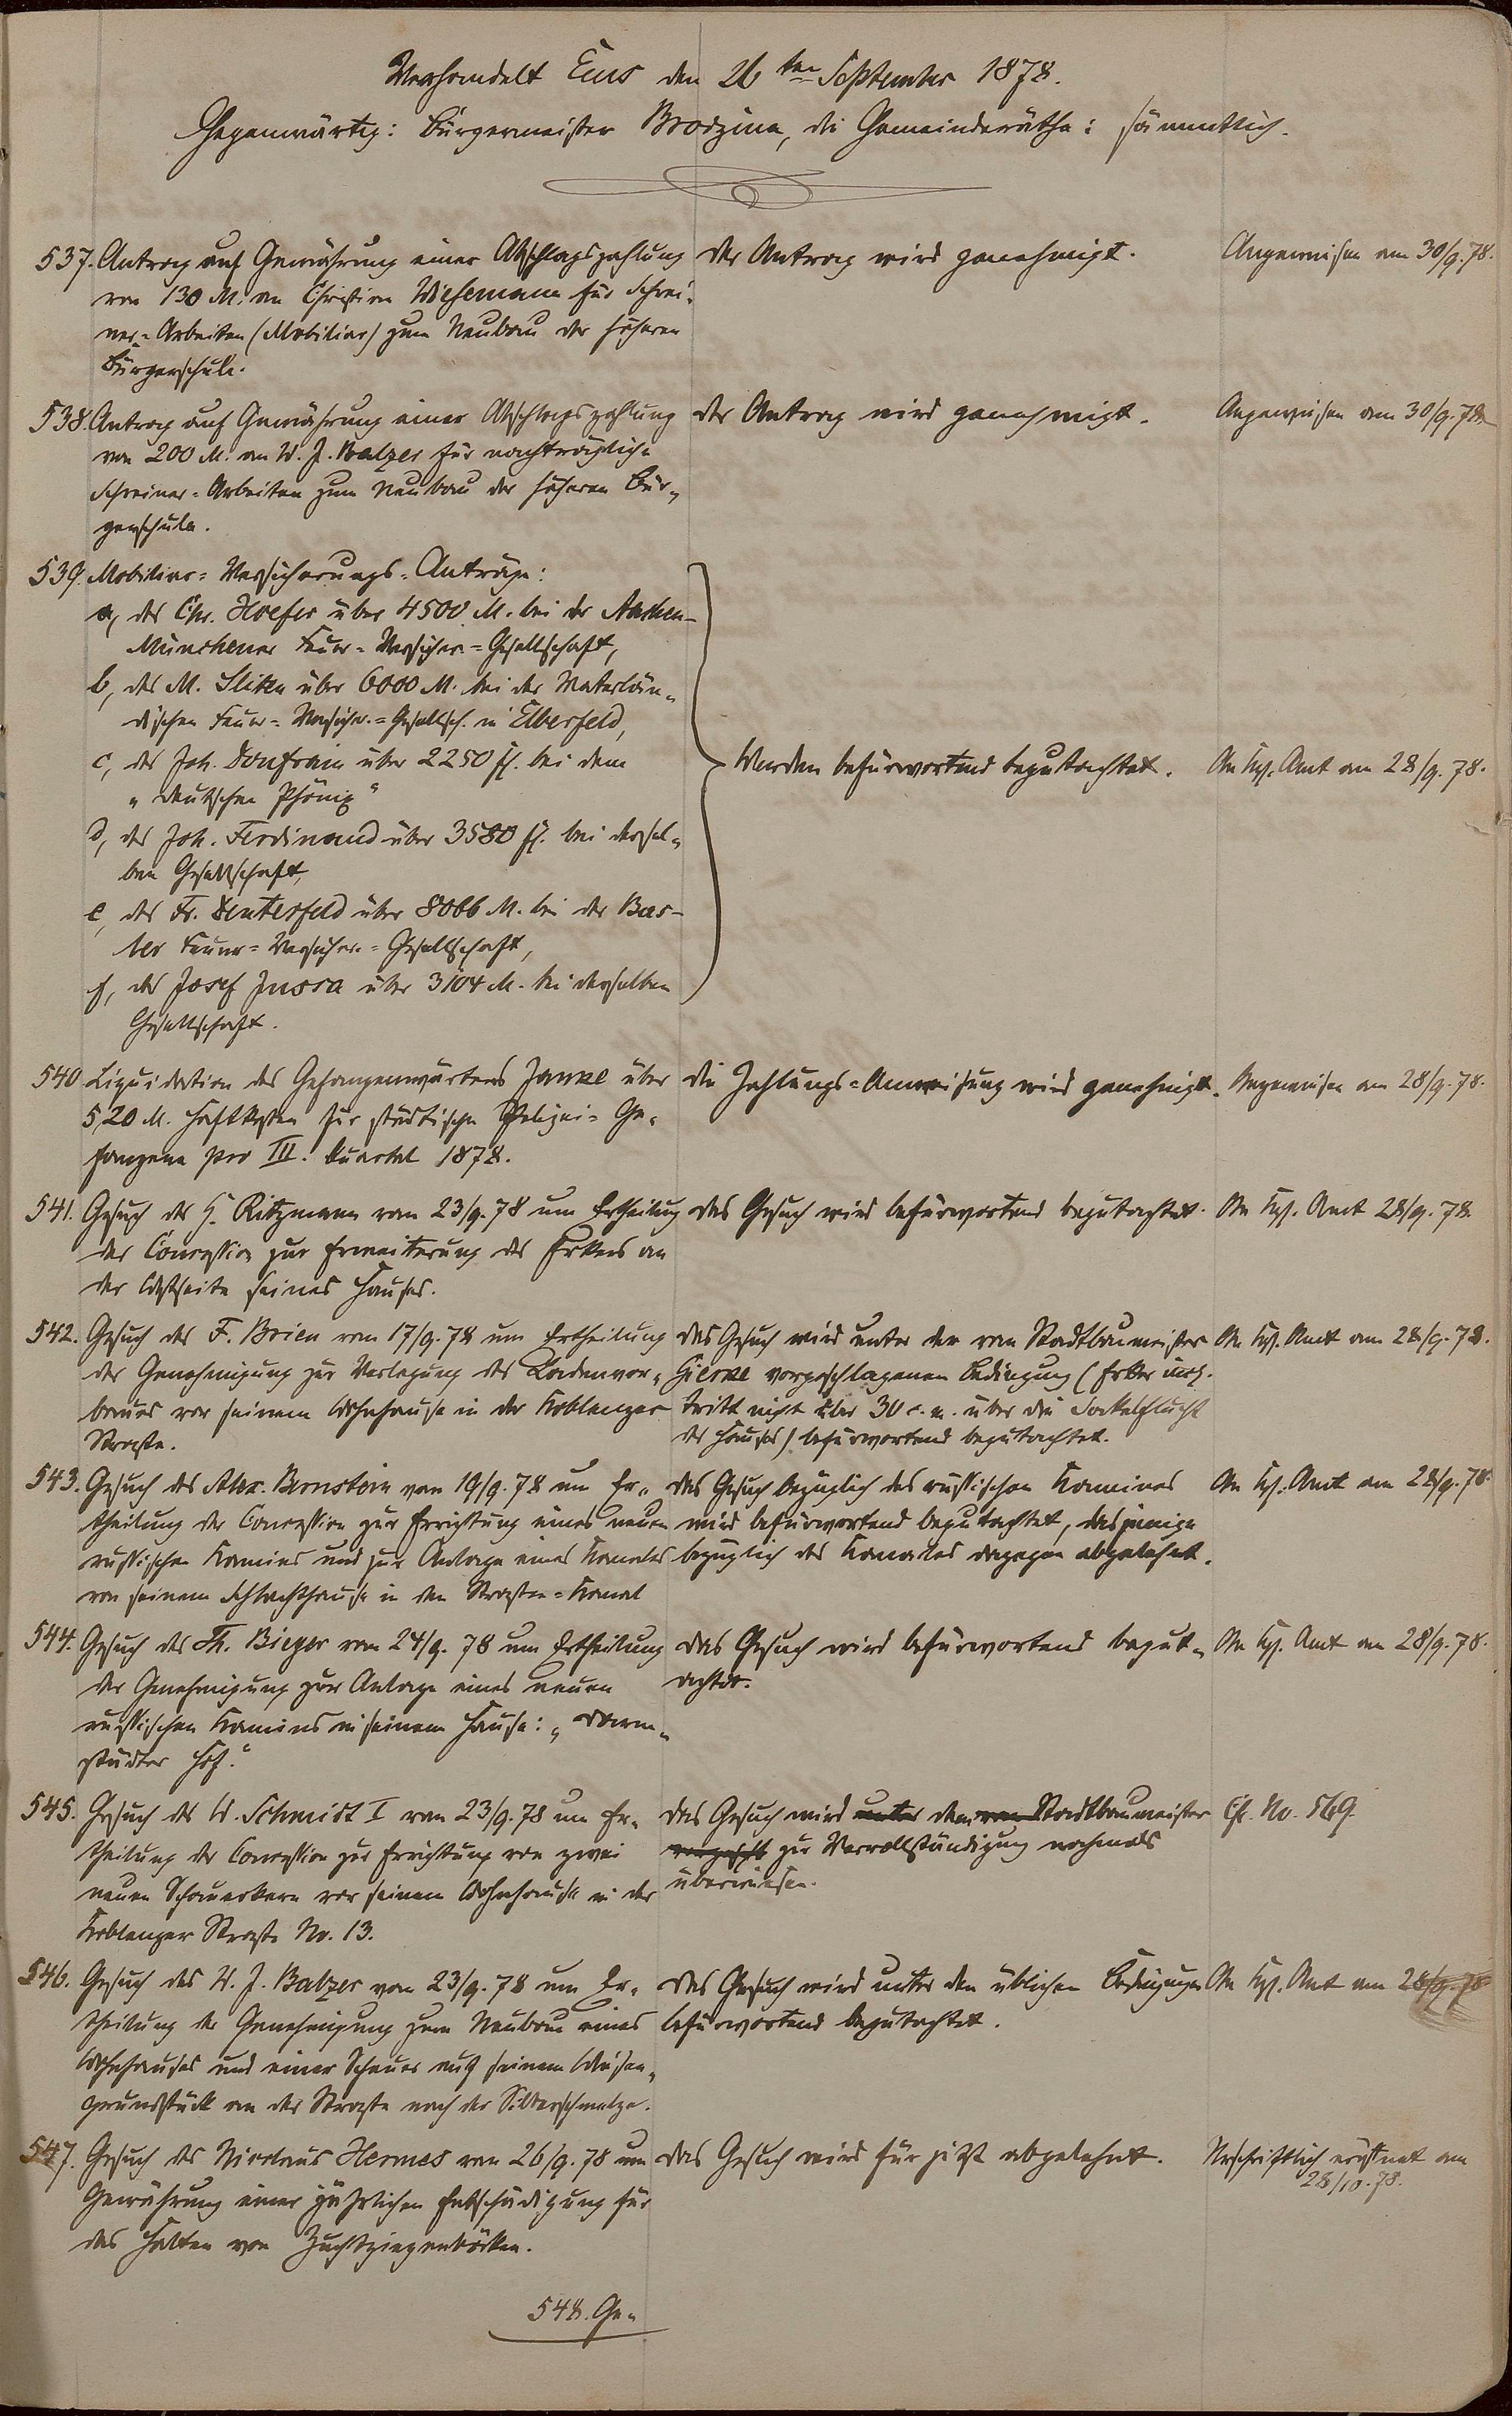 Verhandelt Ems den 26ten September 1878.
Gegenwärtig: Bürgermeister Brodzina, die Gemeinderäthe: sämmtlich.
537. Antrag auf Gewährung einer Abschlagszahlung
von 130 M. an Christian Wiesemann für Schrei-
ner-Arbeiten (Mobiliar) zum Neubau der höheren
Bürgerschule.
Der Antrag wird genehmigt.
Angewiesen am 30/9.78.
538. Antrag auf Gewährung einer Abschlagszahlung
von 200 M. an W. J. Balzer für nachträgliche
Schreiner-Arbeiten zum Neubau der höheren Bür-
gerschule.
Der Antrag wird genehmigt.
Angewiesen am 30/9.78.
539. Mobiliar-Versicherungs-Anträge:
a, des Chr. Hoefer über 4500 M. bei der Aachen-
Münchener Feuer-Versicher.-Gesellschaft,
b, des M. über 6000 M. bei der Vaterlän-
dischen Feuer-Versicher.-Gesellsch. in Elberfeld,
c, des Joh. Donfrain über 2250 fl. bei dem
"Deutschen Phönix"
d, des Joh. Ferdinand über 3580 fl. bei dersel-
ben Gesellschaft,
e, des Fr. über 8066 M. bei der Bas-
ler Feuer-Versicher.-Gesellschaft,
f, des Josef Jussa über 3104 M. bei derselben
Gesellschaft.
Werden befürwortend begutachtet.
An Kgl. Amt am 28/9.78.
540 Liquidation des Gefangenwärters Janke über
5,20 M. Haftkosten für städtische Polizei-Ge-
fangene pro III. Quartal 1878.
Die Zahlungs-Anweisung wird genehmigt.
Angewiesen am 28/9.78.
541. Gesuch des H. Ritzmann vom 23/9.78 um Ertheilung
der Concession zur Erweiterung des Erkers an
der Westseite seines Hauses.
Das Gesuch wird befürwortend begutachtet.
An Kgl. Amt 28/9.78.
542. Gesuch des F. Brien vom 17/9.78 um Ertheilung
der Genehmigung zur Verlegung des Ladenvor-
baues vor seinem Wohnhause in der Koblenzer
Straße.
Das Gesuch wird unter der vom Stadtbaumeister
vorgeschlagenen Bedingung (Erker
tritt nicht über 30 c.m. über die Sockelflucht
des Hauses) befürwortend begutachtet.
An Kgl. Amt am 28/9.78.
543. Gesuch des Alex. Bernstein vom 19/9.78 um Er-
theilung der Concession zur Errichtung eines neuen
russischen Kamines und zur Anlage eines Kanales
von seinem Schlachthause in den Straßen-Kanal
Das Gesuch bezüglich des russischen Kamines
wird befürwortend begutachtet, dasjenige
bezüglich des Kanales dagegen abgelehnt.
An Kgl. Amt am 28/9.78.
544. Gesuch des Th. Bieger vom 24/9.78 um Ertheilung
der Genehmigung zur Anlage eines neuen
russischen Kamins in seinem Hause: "Darm-
städter Hof."
Das Gesuch wird befürwortend begut-
achtet.
An Kgl. Amt am 28/9.78.
545. Gesuch des W. Schmidt I vom 23/9.78 um Er-
theilung der Concession zur Errichtung von zwei
neuen Schauerkern vor seinem Wohnhause in der
Koblenzer Straße No. 13.
Das Gesuch wird unter dem vom Stadtbaumeister
zur Vervollständigung nochmals
überwiesen.
Cf. No. 569.
546. Gesuch des W. J. Balzer vom 23/9.78 um Er-
theilung der Genehmigung zum Neubau eines
Wohnhauses und einer Scheuer auf seinem Wiesen-
grundstück an der Straße nach der Silberschmelze.
Das Gesuch wird unter den üblichen Bedingungen
befürwortend begutachtet.
An Kgl. Amt am 28/9.78
547. Gesuch des Nicolaus Hermes vom 26/9.78 um
Gewährung einer jährlichen Entschädigung für
das Halten von Zuchtziegenböcken.
Das Gesuch wird für jetzt abgelehnt.
Urschriftlich eröffnet am
28/10.78.
548. Ge-